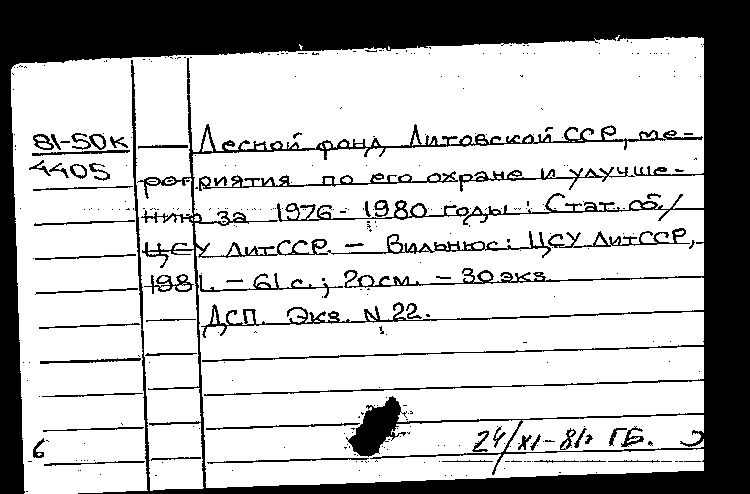 81-50к
4405
Лесной фонд Литовской ССР, ме-
роприятия по его охране и улучше-
нию за 1976-1980 годы : Стат. сб./
ЦСУ ЛитССР. – Вильнюс: ЦСУ ЛитССР,
1981. – 61 с.; 20см. – 30 экз.
ДСП. Экз. N 22.
24/XI-81г ГБ.
6